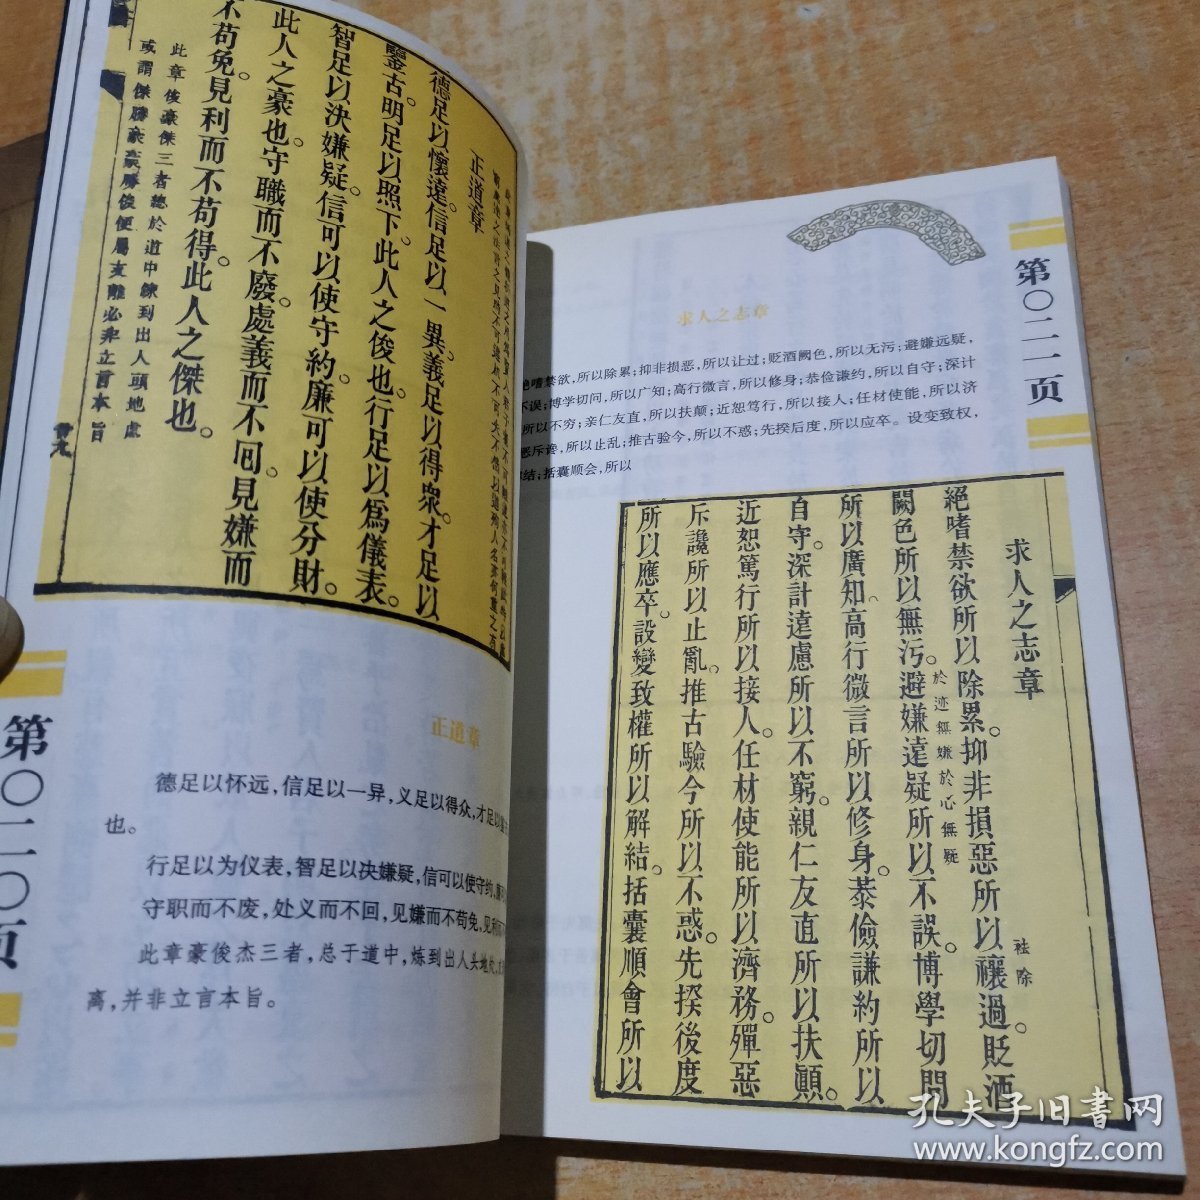 德足以懷遠。信足以一異。義足以得衆。才足以
鑒古。明足以照下。此人之俊也。行足以爲儀表。
智足以決嫌疑。信可以使守約。廉可以使分財。
此人之豪也。守職而不廢。處義而不囘。見嫌而
不苟免。見利而不苟得。此人之傑也。
此章俊豪傑三者總於道中鍊到出人頭地處
或謂傑勝豪豪勝俊便屬支離必非立言本旨
正道章
正道章
德足以怀远，信足以一异，义足以得众，才足以
也。
行足以为仪表，智足以决嫌疑，信可以使守约，
守职而不废，处义而不回，见嫌而不苟免，见利
此章豪俊杰三者，总于道中，炼到出人头地
离，并非立言本旨。
第〇二〇页
第〇二一页
求人之志章
嗜禁欲，所以除累；抑非损恶，所以让过；贬酒阙色，所以无污；避嫌远疑，
不误；博学切问，所以广知；高行微言，所以修身；恭俭谦约，所以自守；深计
所以不穷；亲仁友直，所以扶颠；近恕笃行，所以接人；任材使能，所以济
恶斥谗，所以止乱；推古验今，所以不惑；先揆后度，所以应卒。设变致权，
结；括囊顺会，所以
求人之志章
絕嗜禁欲所以除累。抑非損惡所以禳過。貶酒
祛除
闕色所以無污。避嫌遠疑所以不誤。博學切問
於迹無嫌於心無疑
所以廣知。高行微言所以修身。恭儉謙約所以
自守。深計遠慮所以不窮。親仁友直所以扶顛。
近恕篤行所以接人。任材使能所以濟務。殫惡
斥讒所以止亂。推古驗今所以不惑。先揆後度
所以應卒。設變致權所以解結。括囊順會所以
孔夫子旧书网
www.kongfz.com